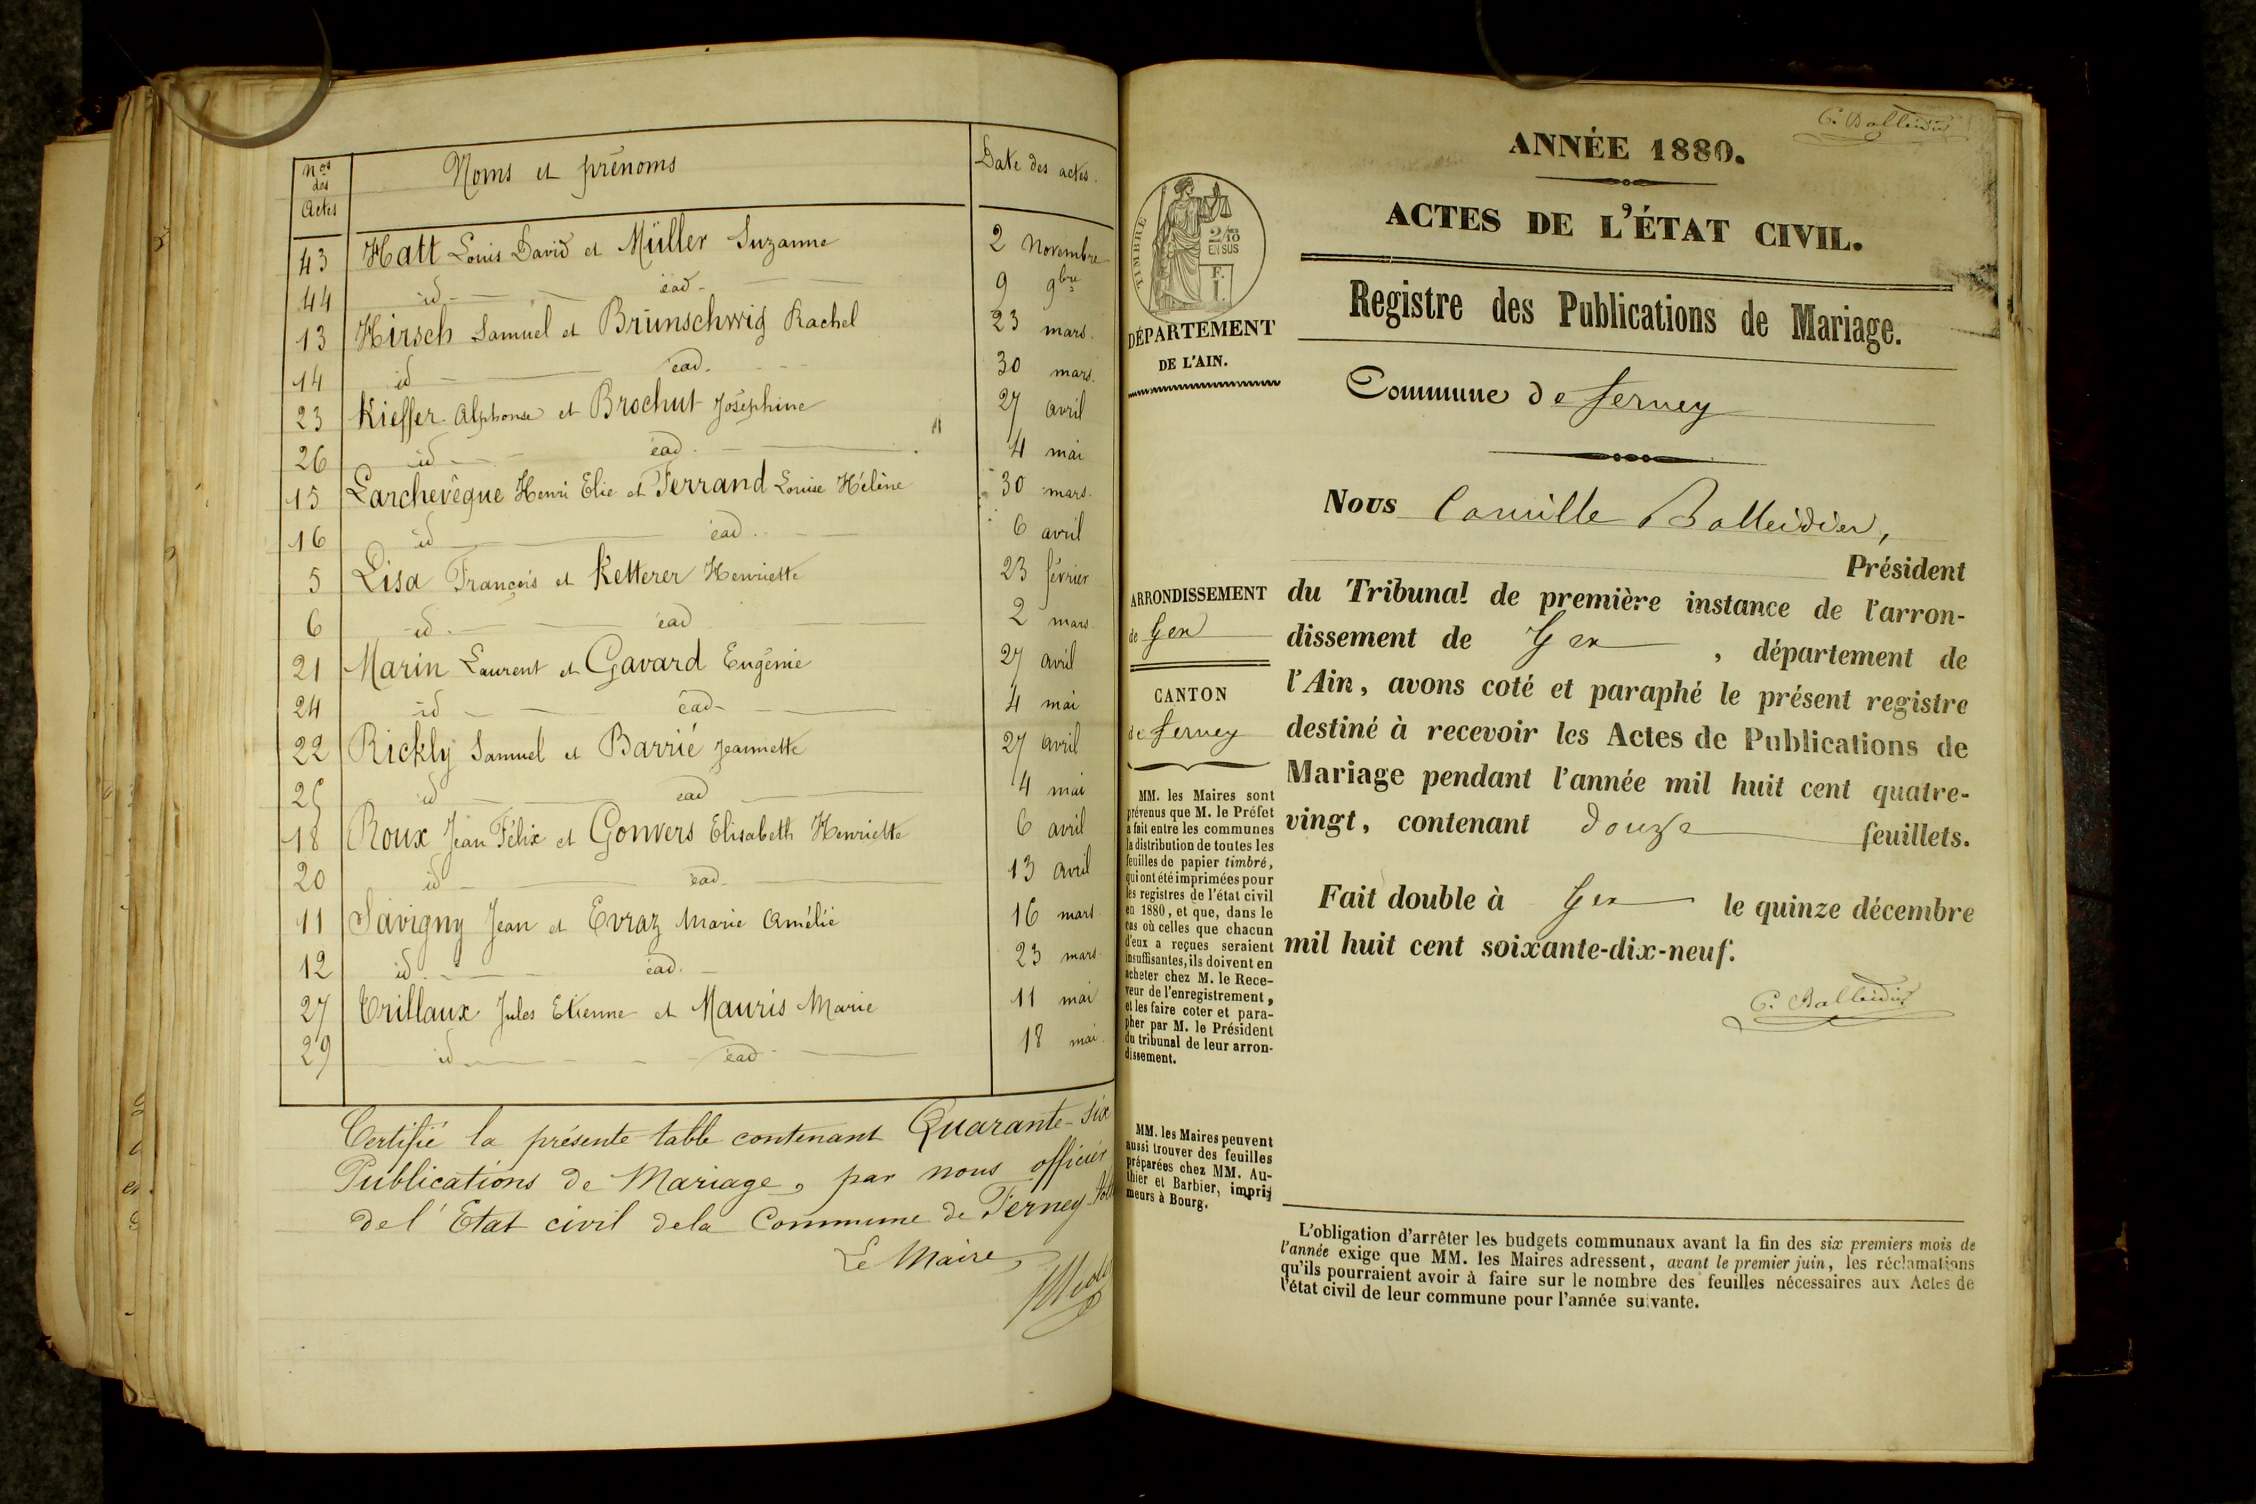 Nos des Actes
Noms et prénoms
Date des actes.
43 Hatt Louis David et Müller Suzanne 2 Novembre
44 id ead 9 9bre
13 Hirsch Samuel et Brünschwig Rachel 23 mars.
14 id ead. 30 mars.
23 Kieffer Alphonse et Brochut Joséphine 27 avril
26 id ead. 4 mai
15 Larchevêque Henri Elie et Ferrand Louise Hélène 30 mars.
16 id ead. 6 avril
5 Lisa François et Ketterer Henriette 23 février
6 id. ead 2 mars
21 Marin Laurent et Gavard Eugénie 27 avril
24 id ead 4 mai
22 Rickly Samuel et Barrié Jeannette 27 avril
25 id ead 4 mai
18 Roux Jean Félix et Gonvers Elisabeth Henriette 6 avril
20 id ead 13 avril
11 Savigny Jean et Evraz Marie Amélie 16 mars
12 id. ead. 23 mars
27 Trillaux Jules Etienne et Mauris Marie 11 mai
29 id ead 18 mai.
Certifié la présente table contenant Quarante-six
Publications de Mariage, par nous officier
de l'Etat civil de la Commune de Ferney
Le Maire
C. Balleidier
ANNÉE 1880.
ACTES DE L'ÉTAT CIVIL.
Registre des Publications de Mariage.
TIMBRE
2/10
EN SUS
F.
1.
DÉPARTEMENT
DE L'AIN.
Commune de Ferney
Nous Camille Balleidier,
Président
du Tribunal de première instance de l'arron-
dissement de Gex, département de
l'Ain, avons coté et paraphé le présent registre
destiné à recevoir les Actes de Publications de
Mariage pendant l'année mil huit cent quatre-
vingt, contenant douze feuillets.
Fait double à Gex le quinze décembre
mil huit cent soixante-dix-neuf.
C. Balleidier
ARRONDISSEMENT
de Gex
CANTON
de Ferney
MM. les Maires sont
prévenus que M. le Préfet
a fait entre les communes
la distribution de toutes les
feuilles de papier timbré,
qui ont été imprimées pour
les registres de l'état civil
en 1880, et que, dans le
cas où celles que chacun
d'eux a reçues seraient
insuffisantes, ils doivent en
acheter chez M. le Rece-
veur de l'enregistrement,
et les faire coter et para-
pher par M. le Président
du tribunal de leur arron-
dissement.
MM. les Maires peuvent
aussi trouver des feuilles
préparées chez MM. Au-
thier et Barbier, impri-
meurs à Bourg.
L'obligation d'arrêter les budgets communaux avant la fin des six premiers mois de
l'année exige que MM. les Maires adressent, avant le premier juin, les réclamations
qu'ils pourraient avoir à faire sur le nombre des feuilles nécessaires aux Actes de
l'état civil de leur commune pour l'année suivante.